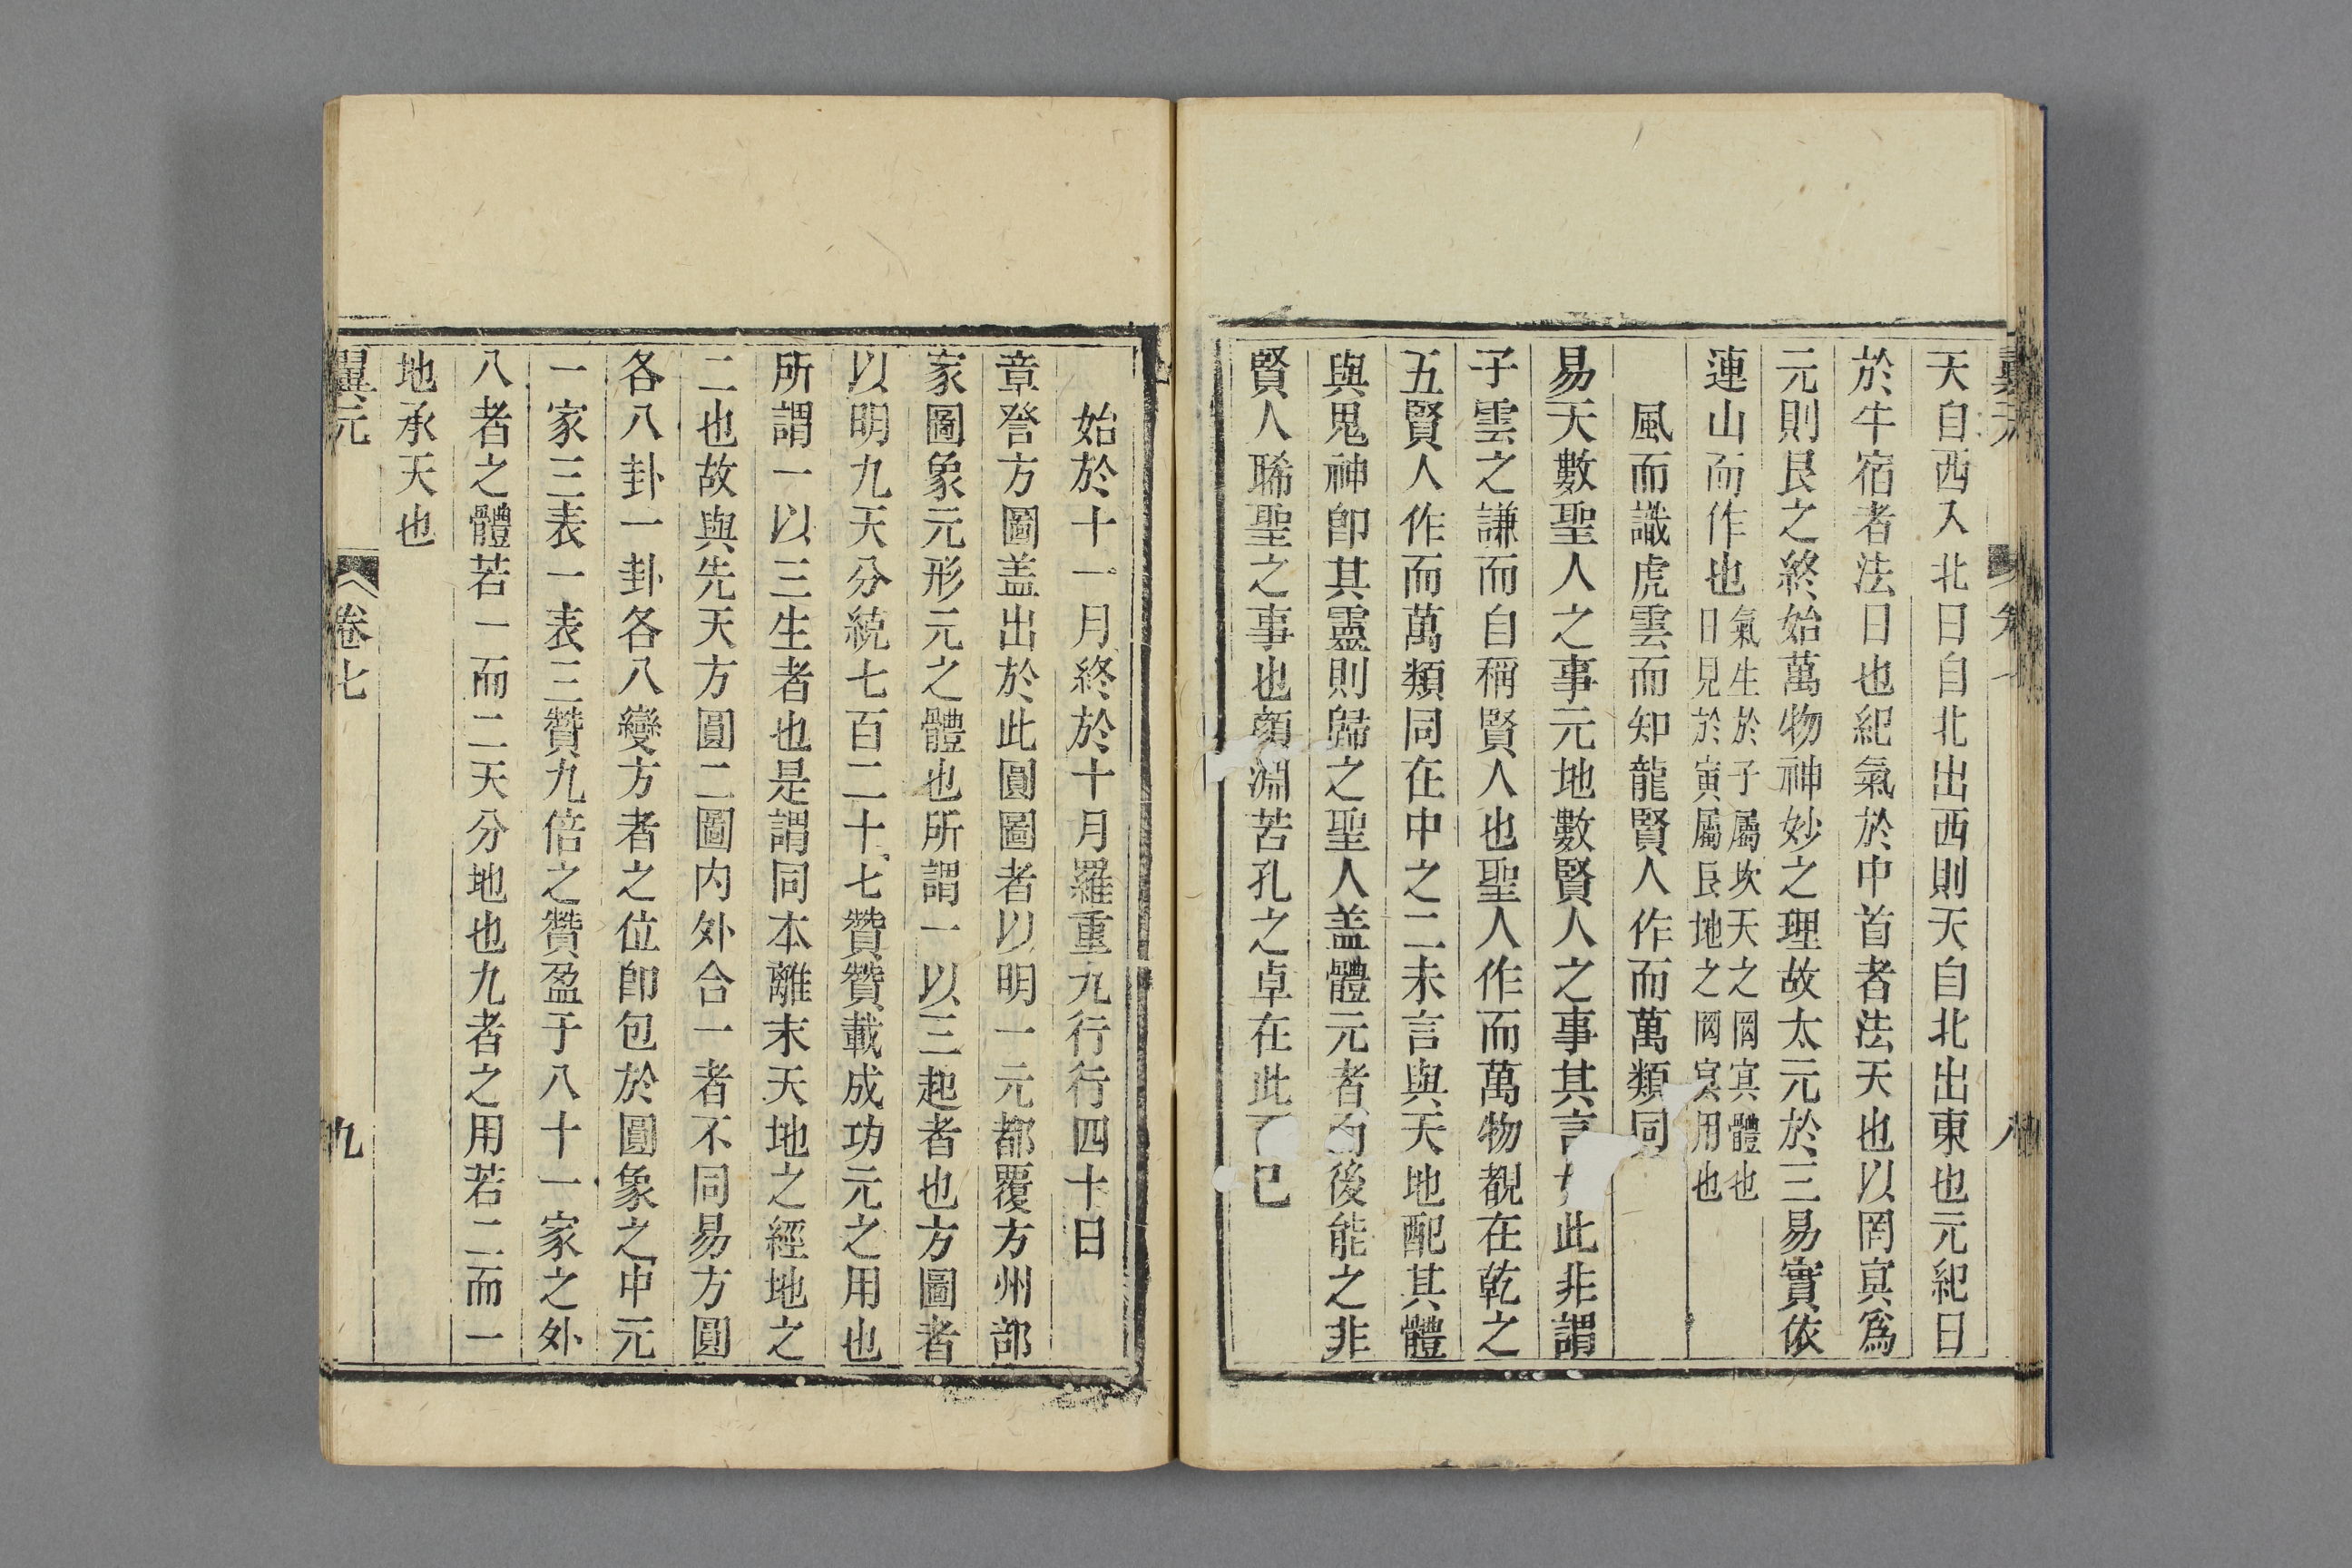 天自西入北日自北出西則天自北出東也元紀日
於牛宿者法日也紀氣於中首者法天也以罔㝠爲
元則艮之終始萬物神妙之理故太元於三易實依
連山而作也氣生於子屬坎天之罔㝠體也
日見於寅屬艮地之罔㝠用也
風而識虎雲而知龍賢人作而萬類同
易天數聖人之事元地數賢人之事其言此非謂
子雲之謙而自稱賢人也聖人作而萬物覩在乾之
五賢人作而萬類同在中之二未言與天地配其體
與鬼神卽其靈則歸之聖人盖體元者而後能之非
賢人睎聖之事也顏淵苦孔之卓在此而已
始於十一月終於十月羅重九行行四十日
章詧方圖盖出於此圓圖者以明一元都覆方州部
家圖象元形元之體也所謂一以三起者也方圖者
以明九天分統七百二十七贊贊載成功元之用也
所謂一以三生者也是謂同本離末天地之經地之
二也故與先天方圓二圖内外合一者不同易方圓
各八卦一卦各八變方者之位卽包於圓象之中元
一家三表一表三贊九倍之贊盈于八十一家之外
八者之體若一而二天分地也九者之用若二而一
地承天也
翼元
卷七
九